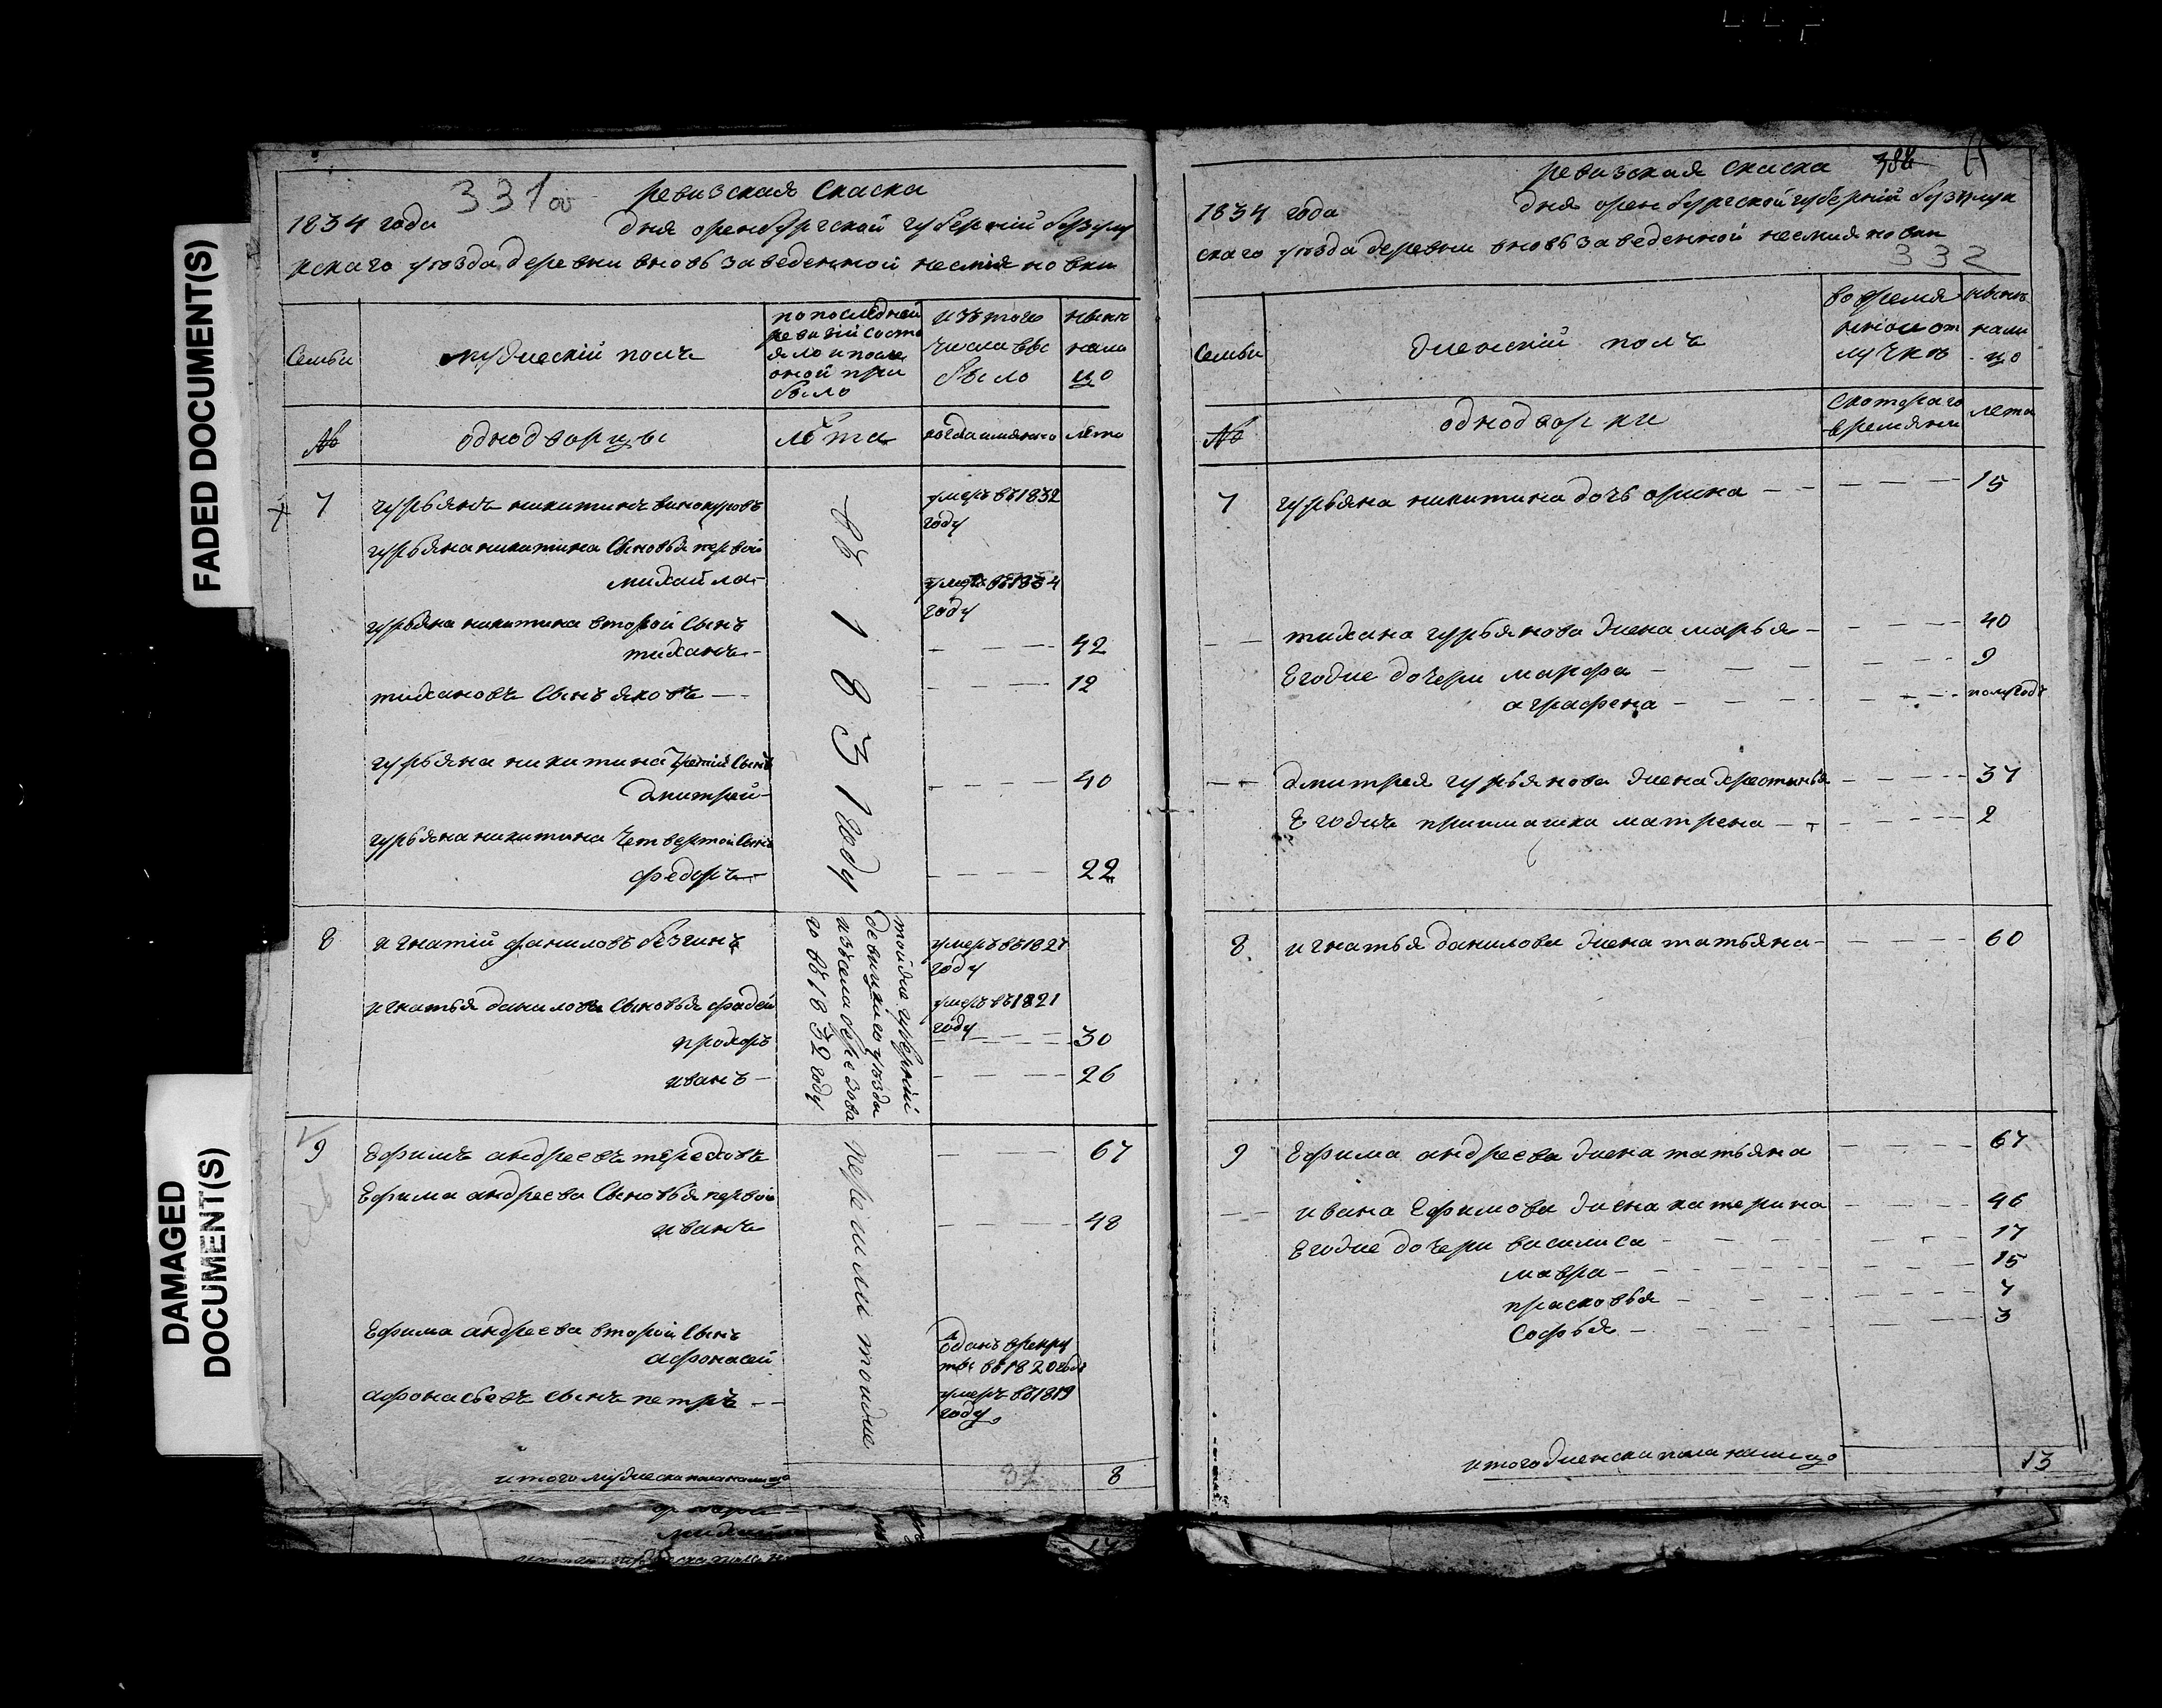 FADED DOCUMENT(S)
DAMAGED
DOCUMENT(S)
331 об
ревизская скаска
1834 года дня оренбургской губерній бузулу
кскаго уезда деревни вновь заведенной несмияновки
Семьи
мужескій полъ
по последней
ревизій состо
яло и после
оной при
было
изъ того
числа вы
было
ныне
нали
цо
№
однодворцы
лета
когда имянно
лета
7
гурьянъ никитинъ винокуровъ
умеръ въ 1832
году
гурьяна никитина сыновья первой
михайла
умеръ въ 1834
году
гурьяна никитина второй сынъ
тиханъ
42
тихановъ сынъ яковъ
12
гурьяна никитина третій сынъ
дмитрей
40
гурьяна никитина четвертой сынъ
федоръ
22
въ 1831 году
8
игнатій даниловъ безгинъ
умеръ въ 1827
году
игнатья данилова сыновья фадей
умеръ въ 1821
году
прохоръ
30
иванъ
26
тойже губерній
уезда
изъ села березова
въ 1832 году
9
Ефимъ андреевъ тереховъ
67
Ефима андреева сыновья первой
иванъ
48
Ефима андреева второй сынъ
афонасей
отданъ врекру
ты въ 1820 году
афонасьевъ сынъ петръ
умеръ въ 1819
году
перешли тоже
итого мужеска пола налицо
8
ревизская скаска
332
1834 года дня оренбургской губерній бузулук
скаго уезда деревни вновь заведенной несмияновки
Семьи
женскій полъ
во время
отлучке
ныне
нали
цо
№
однодворки
скотораго
времяни
лета
7
гурьяна никитина дочь орина
15
тихана гурьянова жена марья
40
Егоже дочери марфа
9
аграфена
полугода
дмитрея гурьянова жена хрестинья
37
Егожъ приимашка матрена
2
8
игнатья данилова жена татьяна
60
9
Ефима андреева жена татьяна
67
ивана Ефимова жена катерина
46
Егоже дочери василиса
17
мавра
15
прасковья
7
Софья
3
итого женска пола налицо
13